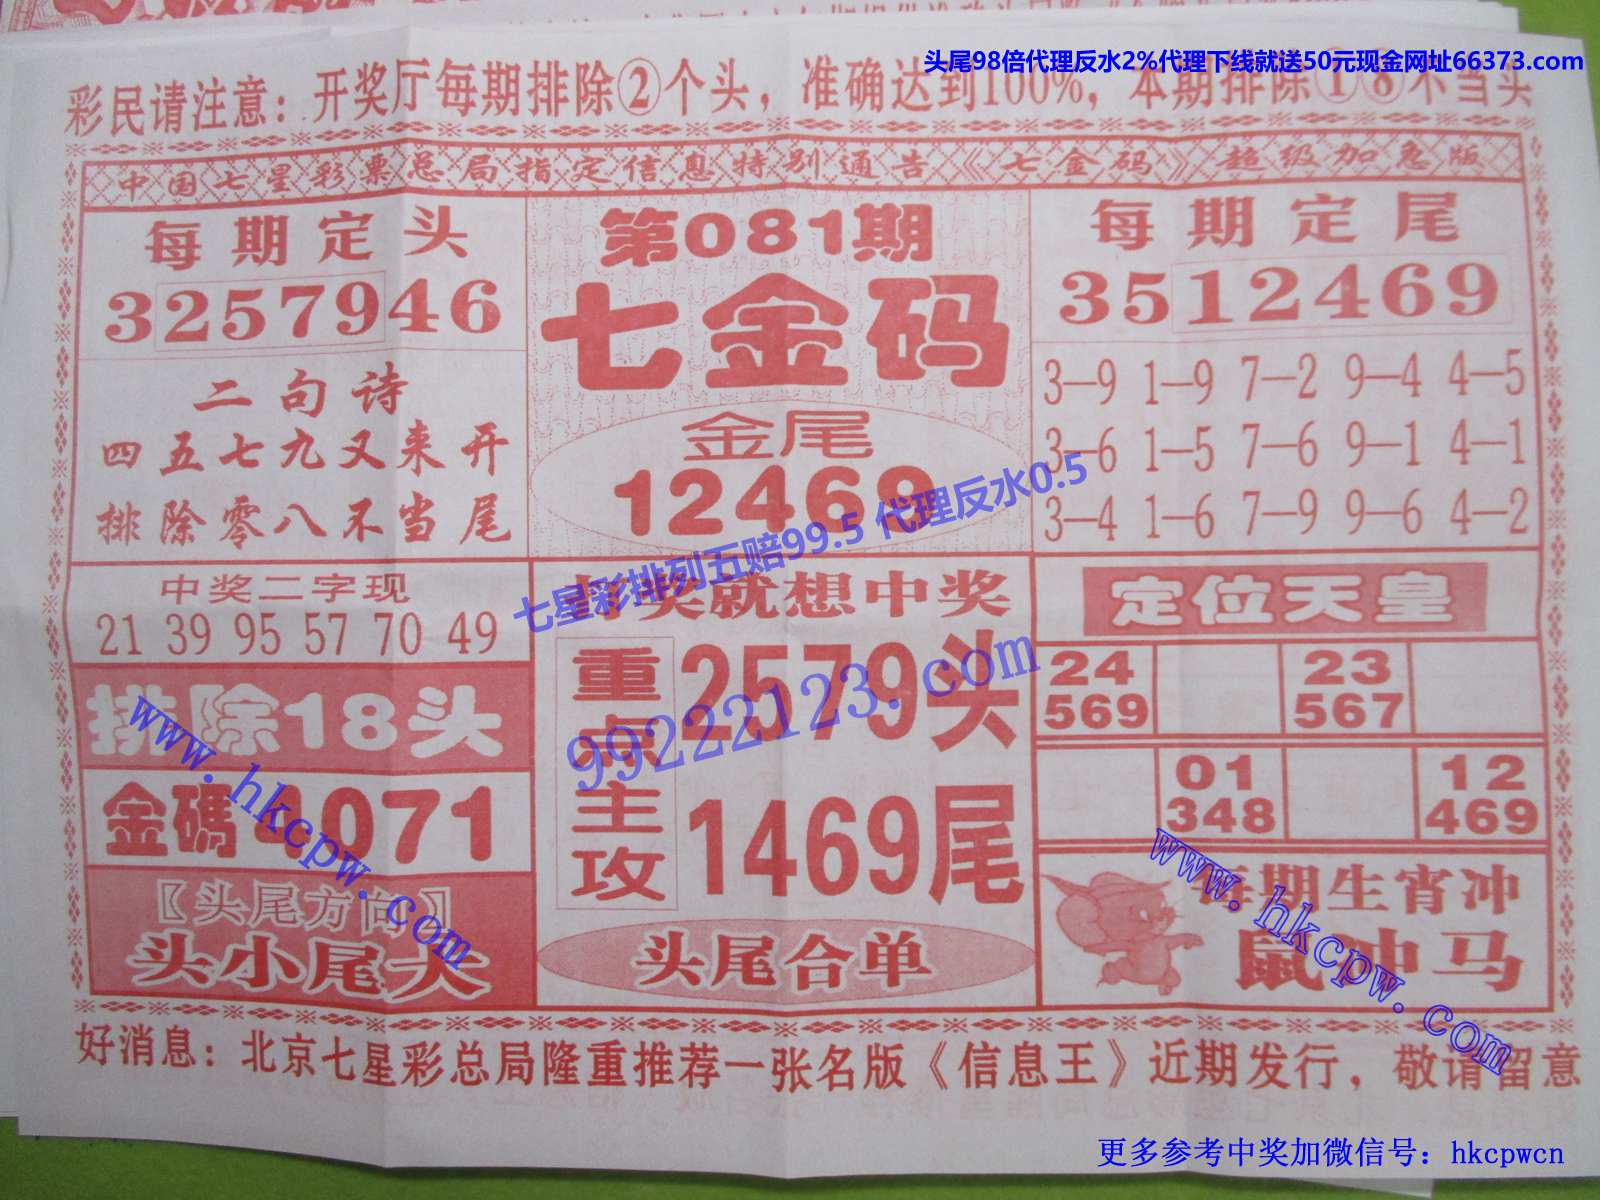 头尾98倍代理反水2%代理下线就送50元现金网址66373.com
彩民请注意：开奖厅每期排除②个头，准确达到100%，本期排除①⑧不当头
中国七星彩票总局指定信息特别通告《七金码》超级加急版
每期定头
3257946
二句诗
四五七九又来开
排除零八不当尾
第081期
七金码
金尾
12469
每期定尾
3512469
3—9 1—9 7—2 9—4 4—5
3—6 1—5 7—6 9—1 4—1
3—4 1—6 7—9 9—6 4—2
七星彩排列五赔99.5 代理反水0.5
中奖二字现
21 39 95 57 70 49
排除18头
金碼 071
〖头尾方向〗
头小尾大
奖就想中奖
重点主攻
2579头
1469尾
99222123.com
头尾合单
定位天皇
24 23
569 567
01 12
348 469
每期生肖冲
鼠冲马
www.hkcpw.com
www.hkcpw.com
好消息：北京七星彩总局隆重推荐一张名版《信息王》近期发行，敬请留意
更多参考中奖加微信号：hkcpwcn